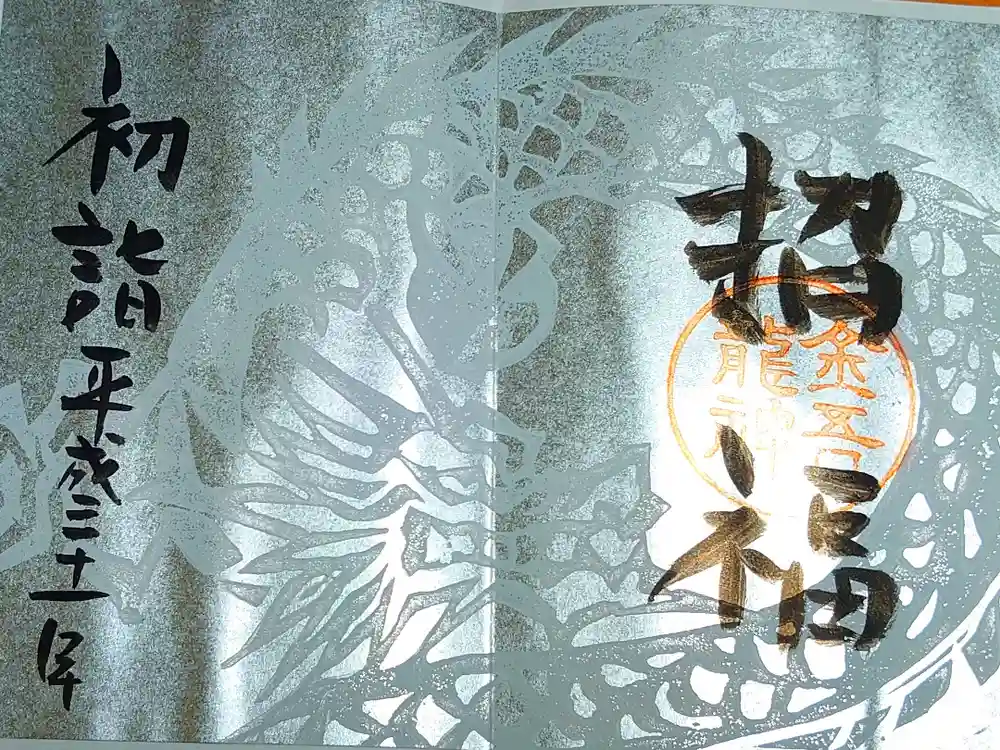 招福
金吾
龍神
初詣平成三十一年